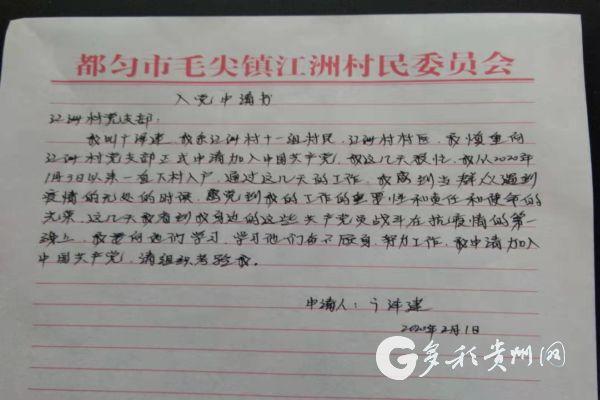 都匀市毛尖镇江洲村民委员会
入党申请书
江洲村党支部:
我叫 建,我系江洲村十一组村民,江洲村村医,我慎重向
江洲村党支部正式申请加入中国共产党,我这几天 ,我从2020年
1月3日以来一直下村入户,通过这几天的工作,我感到当群众遇到
疫情的 处的时候,感觉到我的工作的重要性和责任和使命的
光荣,这几天我看到我身边的这些共产党员战斗在抗疫情的第一
线上,我要向他们学习,学习他们奋不顾身,努力工作,我申请加入
中国共产党,请组织考验我。
申请人: 建
2020年2月1日
多彩贵州网